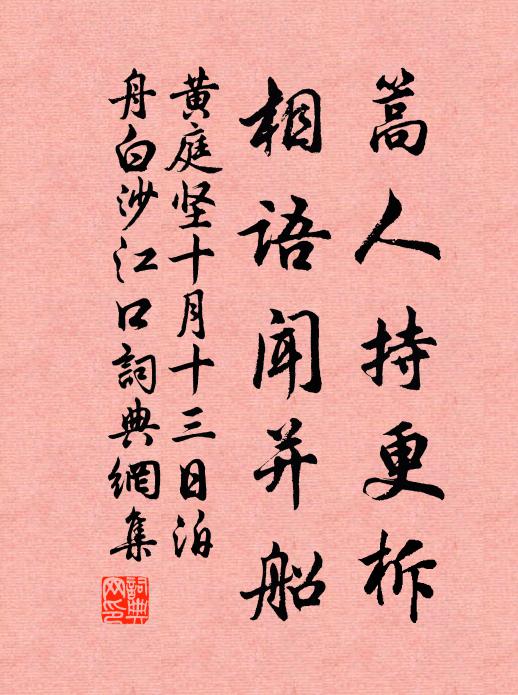 篙人持更柝
相语闻并船
黄庭坚十月十三日泊
舟白沙江口詞典網集
詞典
网印